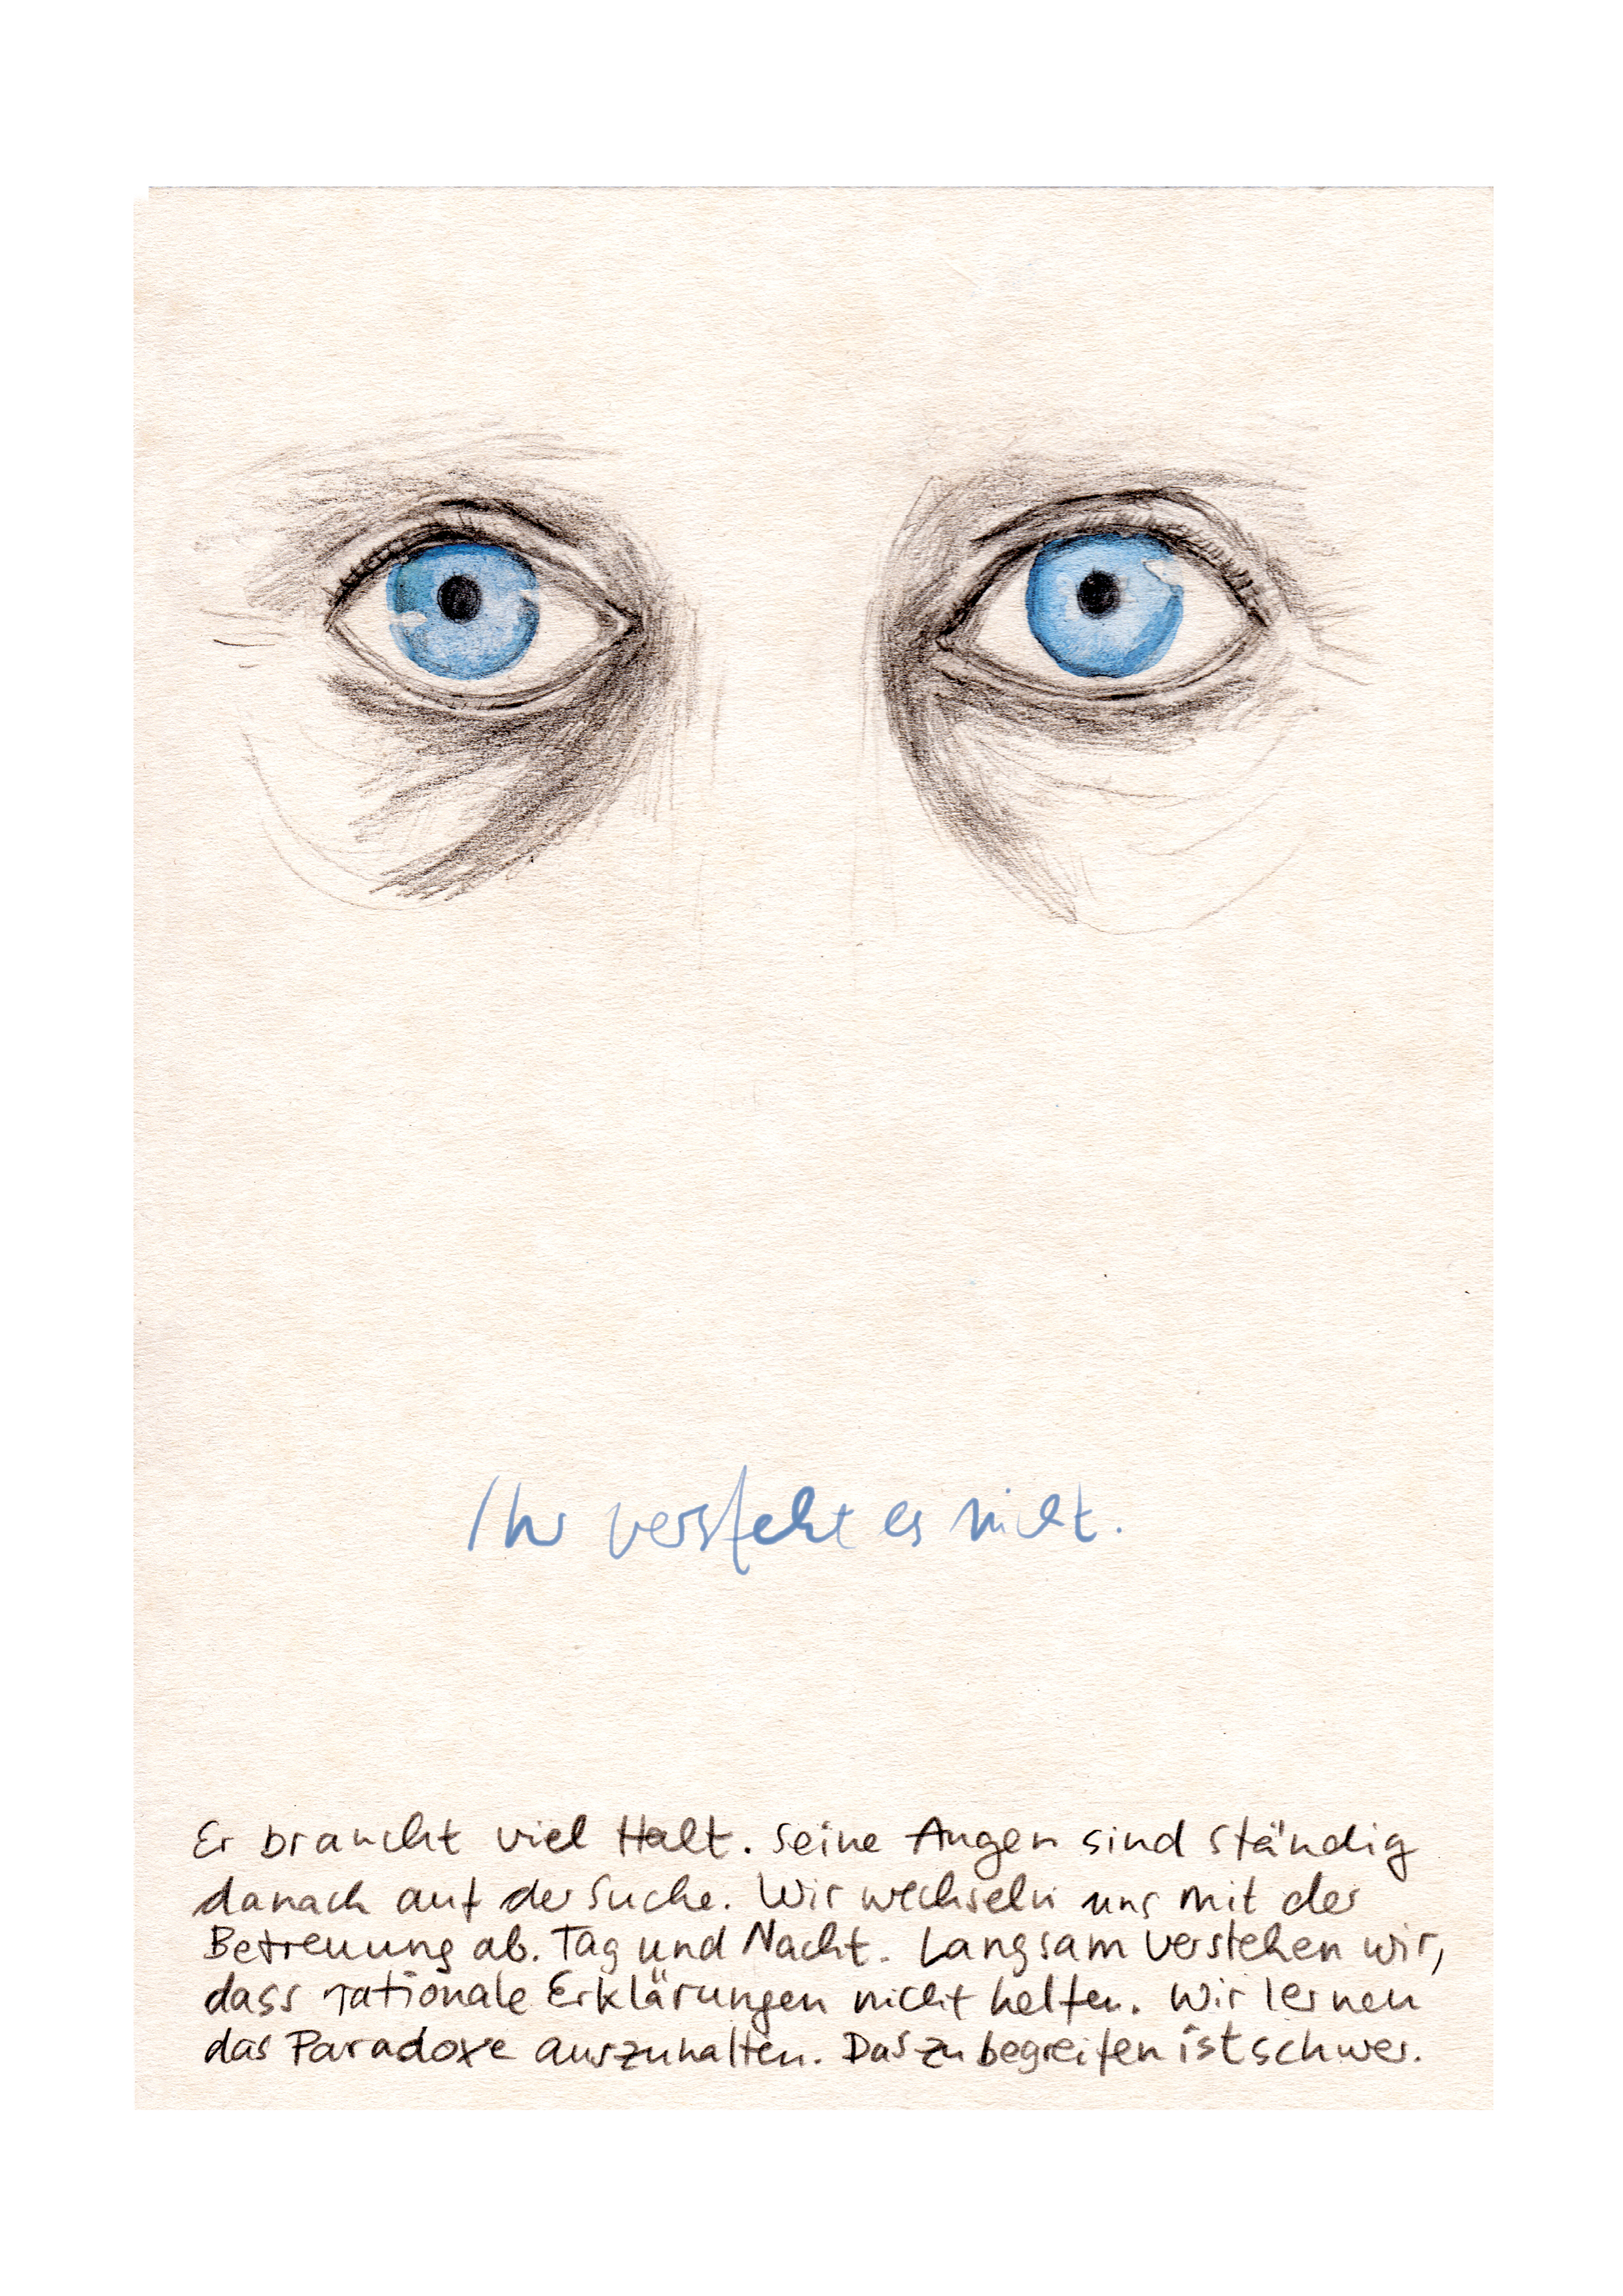 Ihr versteht es nicht.
Er braucht viel Halt. Seine Augen sind ständig
danach auf der Suche. Wir wechseln uns mit der
Betreuung ab. Tag und Nacht. Langsam verstehen wir,
dass rationale Erklärungen nicht helfen. Wir lernen
das Paradoxe auszuhalten. Das zu begreifen ist schwer.